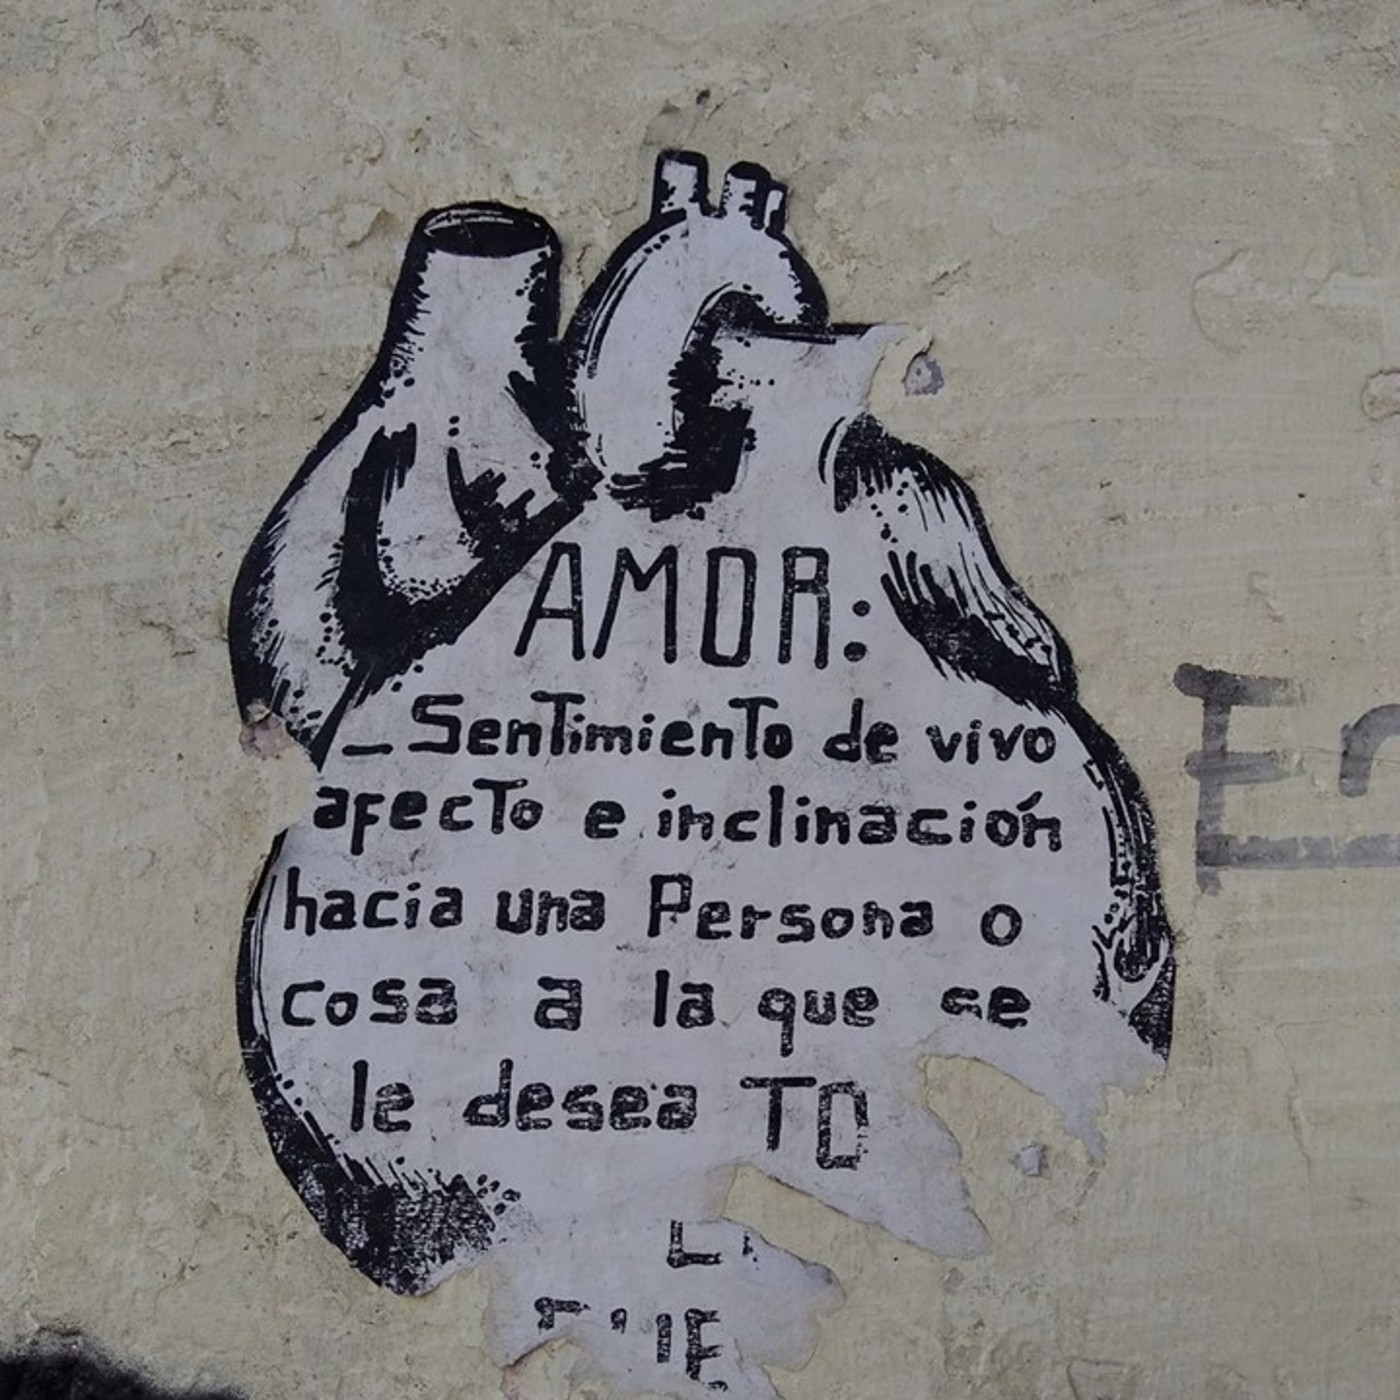 AMOR:
_Sentimiento de vivo
afecto e inclinación
hacia una Persona o
cosa a la que se
le desea TO
En